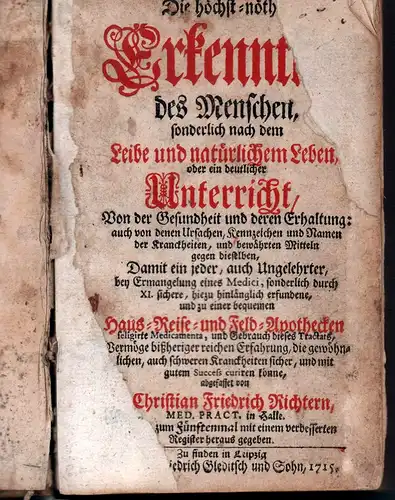 Die höchst-nöth
Erkennt
des Menschen,
sonderlich nach dem
Leibe und natürlichem Leben,
oder ein deutlicher
Unterricht/
Von der Gesundheit und deren Erhaltung:
auch von denen Ursachen, Kennzeichen und Namen
der Kranckheiten, und bewährten Mitteln
gegen dieselben,
Damit ein jeder, auch Ungelehrter,
bey Ermangelung eines Medici, sonderlich durch
XI. sichere, hiezu hinlänglich erfundene,
und zu einer bequemen
Haus-Reise-und Feld-Apothecken
seligirte Medicamenta, und Gebrauch dieses Tractats,
Vermöge bißheriger reichen Erfahrung, die gewöhn-
lichen, auch schweren Kranckheiten sicher, und mit
gutem Success curiren könne,
abgefasset von
Christian Friedrich Richtern,
MED. PRACT. in Halle.
zum Fünftenmal mit einem verbesserten
Register heraus gegeben.
Zu finden in Leipzig
iedrich Gleditsch und Sohn, 1715.